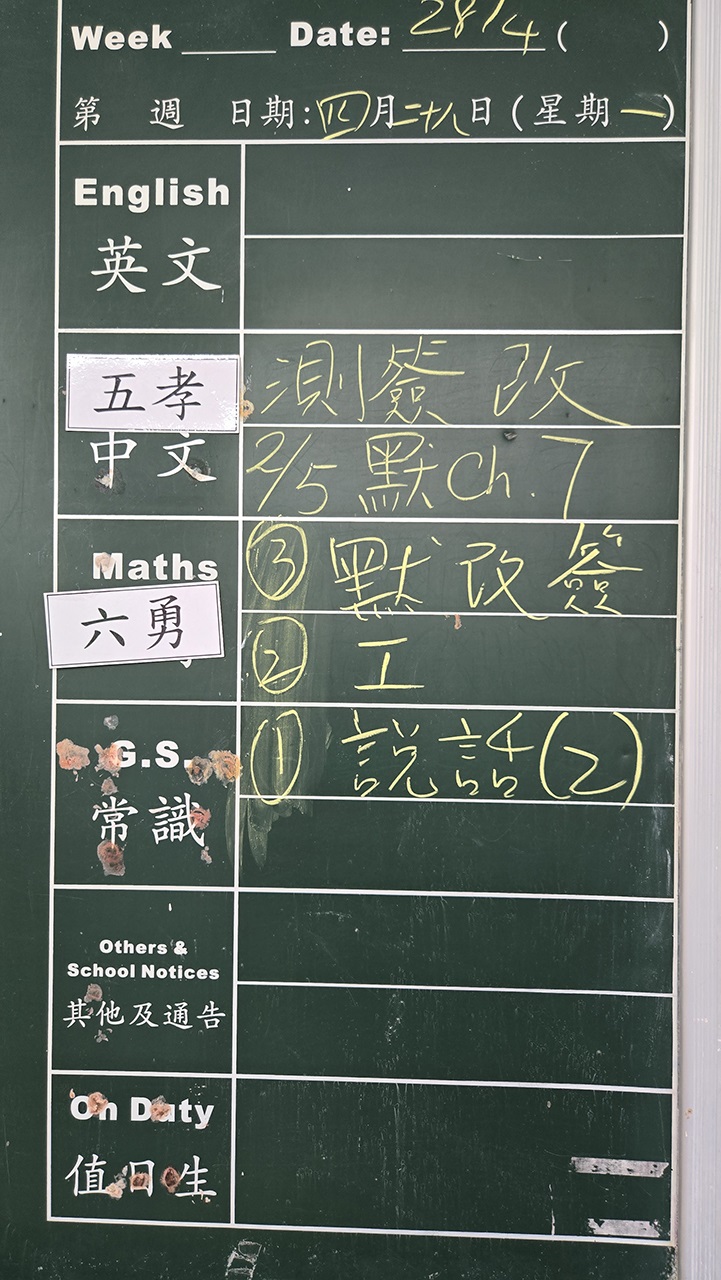 Week ____ Date: 28/4 ( )
第 週 日期:四月二十八日(星期一)
English
英文
五孝
測簽改
中文
2/5 默Ch.7
Maths
③ 默改簽
六勇
② 工
G.S.
① 説話(2)
常識
Others &
School Notices
其他及通告
On Duty
值日生